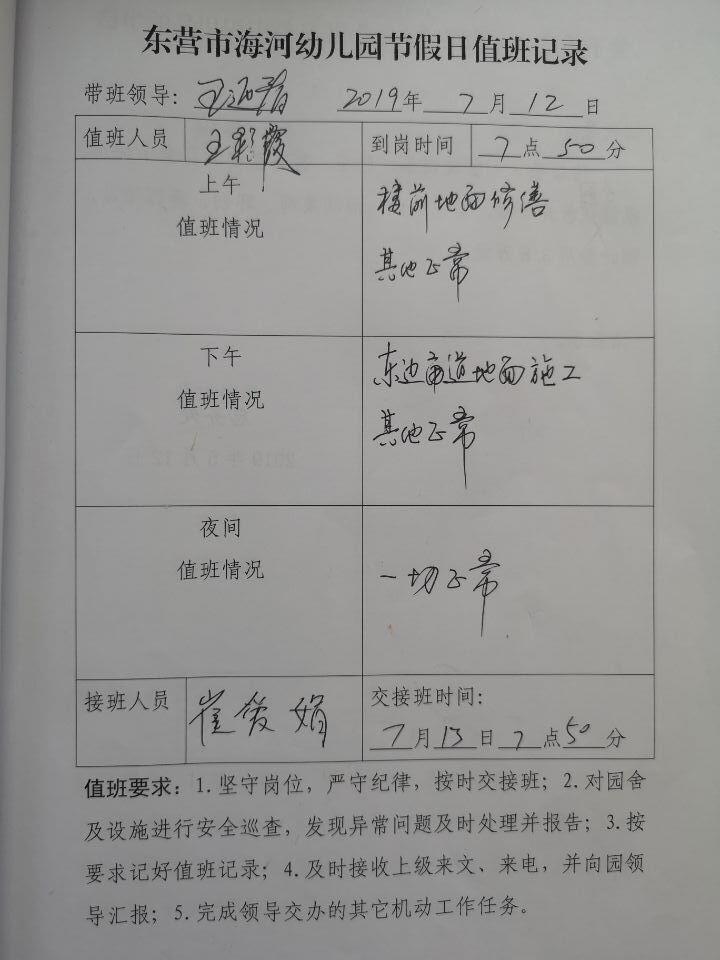 东营市海河幼儿园节假日值班记录
带班领导： 2019年 7月 12日
值班人员 王彩霞 到岗时间 7点50分
上午
值班情况
楼前地面修缮
其他正常
下午
值班情况
东边甬道地面施工
其他正常
夜间
值班情况
一切正常
接班人员 崔俊娟 交接班时间：
7月13日7点50分
值班要求：1.坚守岗位，严守纪律，按时交接班；2.对园舍
及设施进行安全巡查，发现异常问题及时处理并报告；3.按
要求记好值班记录；4.及时接收上级来文、来电，并向园领
导汇报；5.完成领导交办的其它机动工作任务。